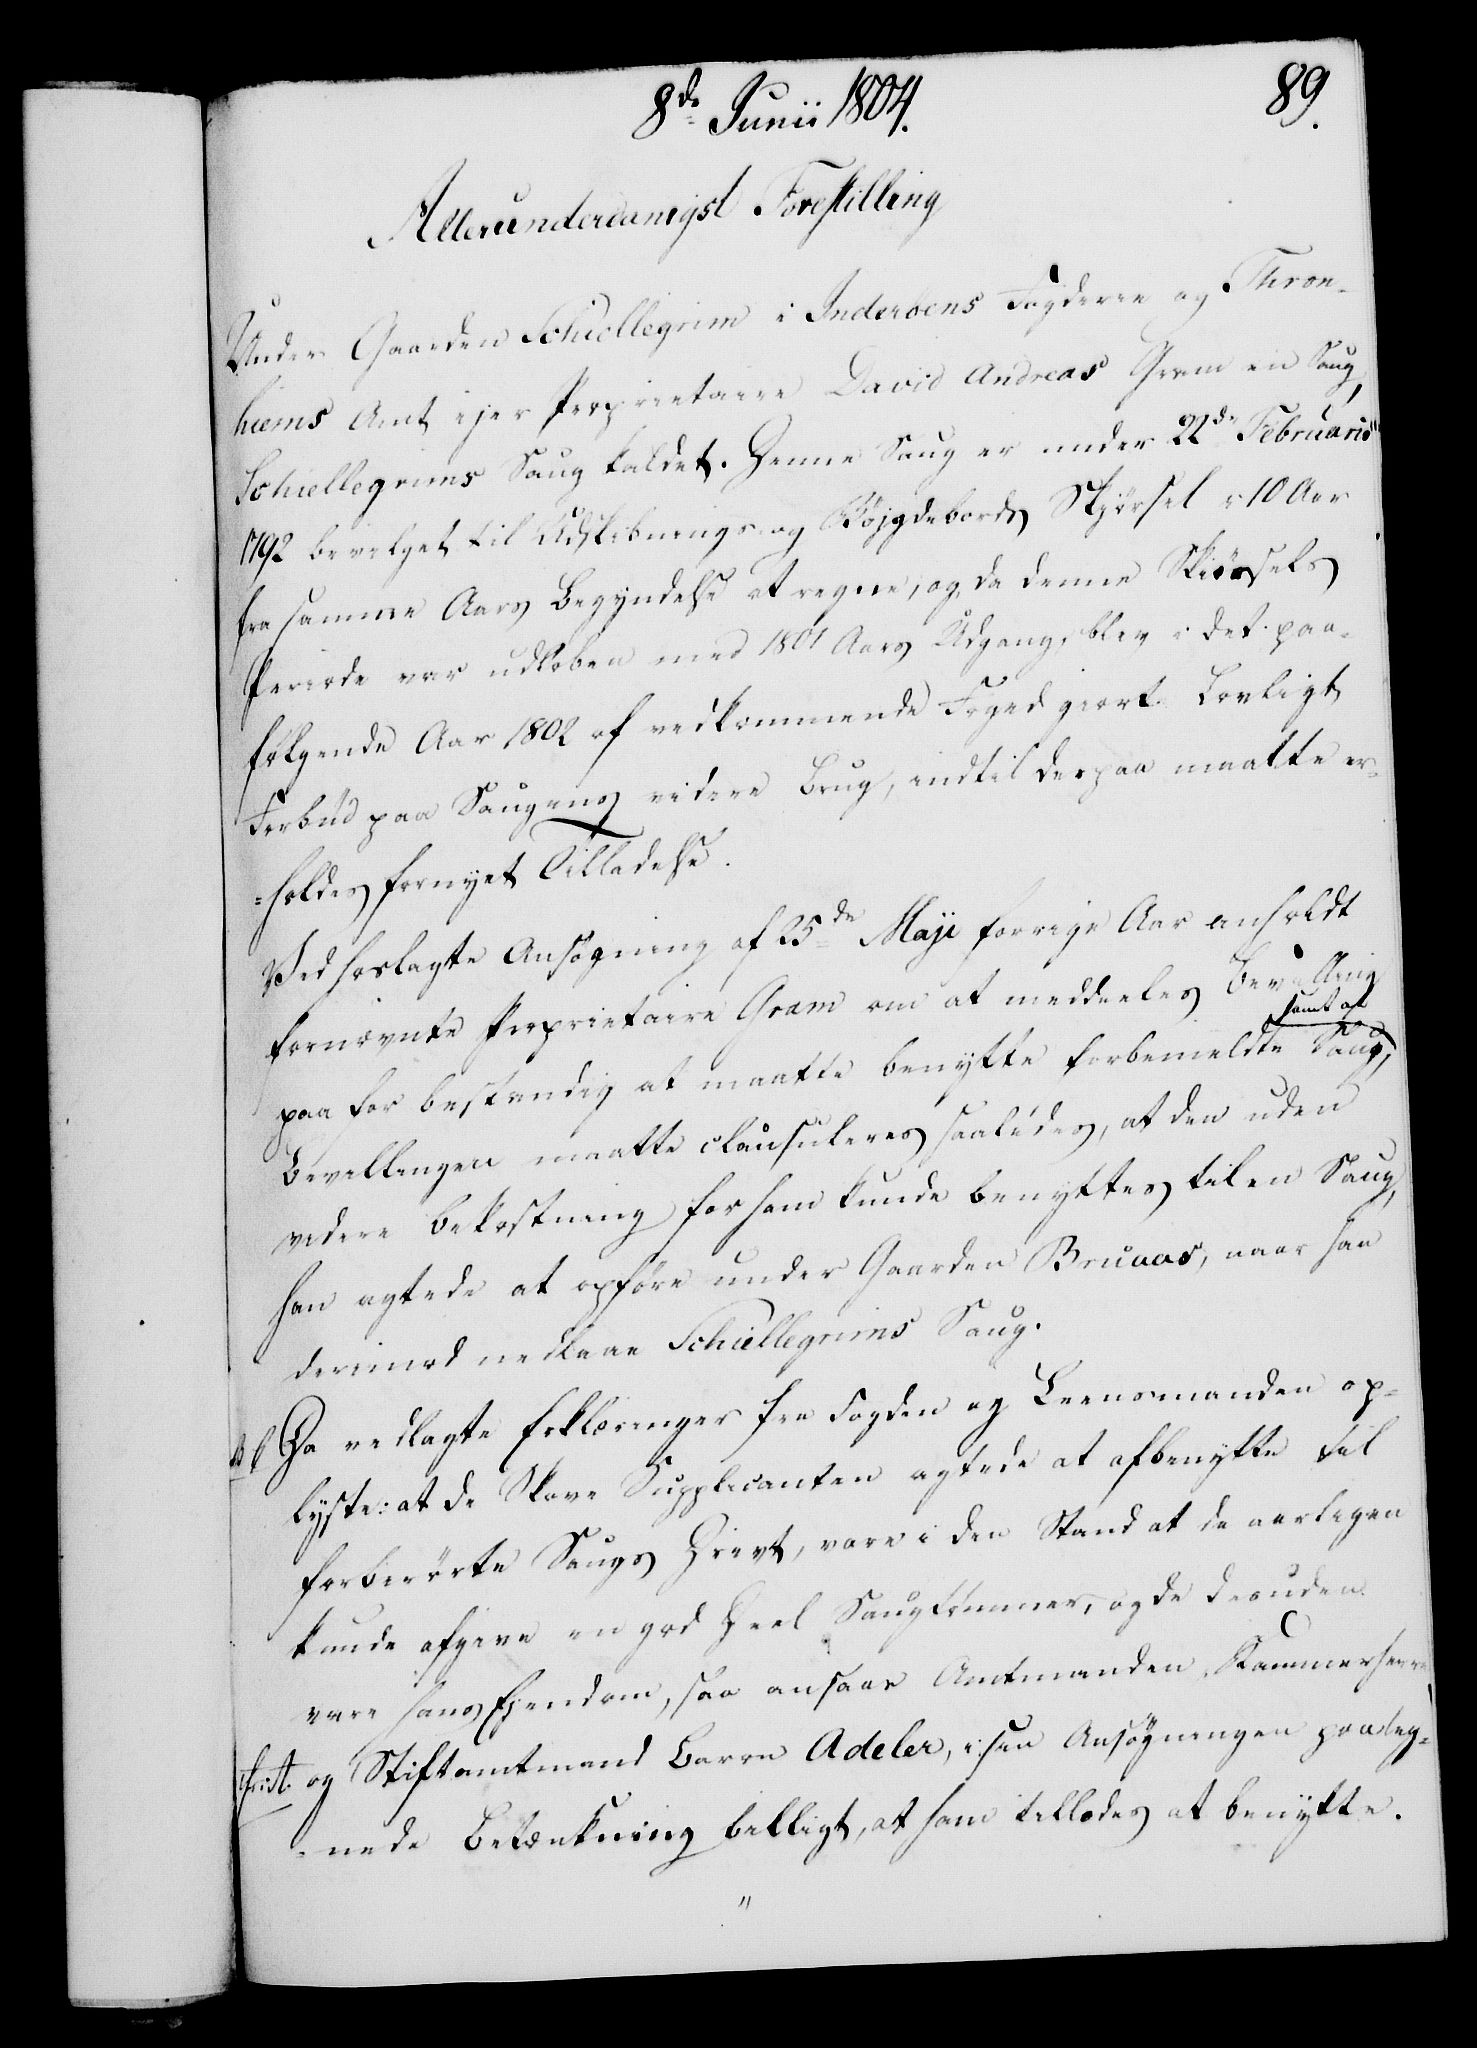 8de Junii 1804.
89.
Allerunderdanigst Forestilling
Under Gaarden Schiellegrim i Inderøens Fogderie og Thron-
hiems Amt ejer Proprietaire David Andreas Gram en Saug,
Schiellegrims Saug kaldet. Denne Saug er under 22de Februarii
1792 bevilget til Udskibnings- og Bøjgdebords Skjørsel i 10 Aar
fra samme Aars Begyndelse at regne, og da denne Skiørsels
Periode var udløben med 1801 Aars Udgang, blev i det paa-
følgende Aar 1802 af vedkommende Foged giort Lovligt
Forbud paa Saugens videre Brug, indtil derpaa maatte er-
=holdes fornyet Tilladelse.
Ved hoslagte Ansøgning af 25de Maji forrige Aar anholdt
fornævnte Proprietaire Gram om at meddeeles Bevilling
paa for bestandig at maatte benytte forbemeldte Saug,
samt at
Bevillingen maatte clausuleres saaledes, at den uden
videre bekostning for ham kunde benyttes til en Saug,
han agtede at opføre under Gaarden Bruaas, naar han
derimod nedlagde Schiellegrims Saug.
Da vedlagte Erklæringer fra Fogden og Leensmanden op-
lyste: at de Skove Supplicanten agtede at afbenytte til
forberørte Saugs Drivt, vare i den Stand at de aarligen
kunde afgive en god Deel Saugtømmer, og de desuden
vare hans Ejendom, saa ansaae Amtmanden, Kammerherre
og Stiftamtmand Baron Adeler, i sin Ansøgningen paateg-
=nede Betænkning billigt, at ham tillodes at benytte.
"